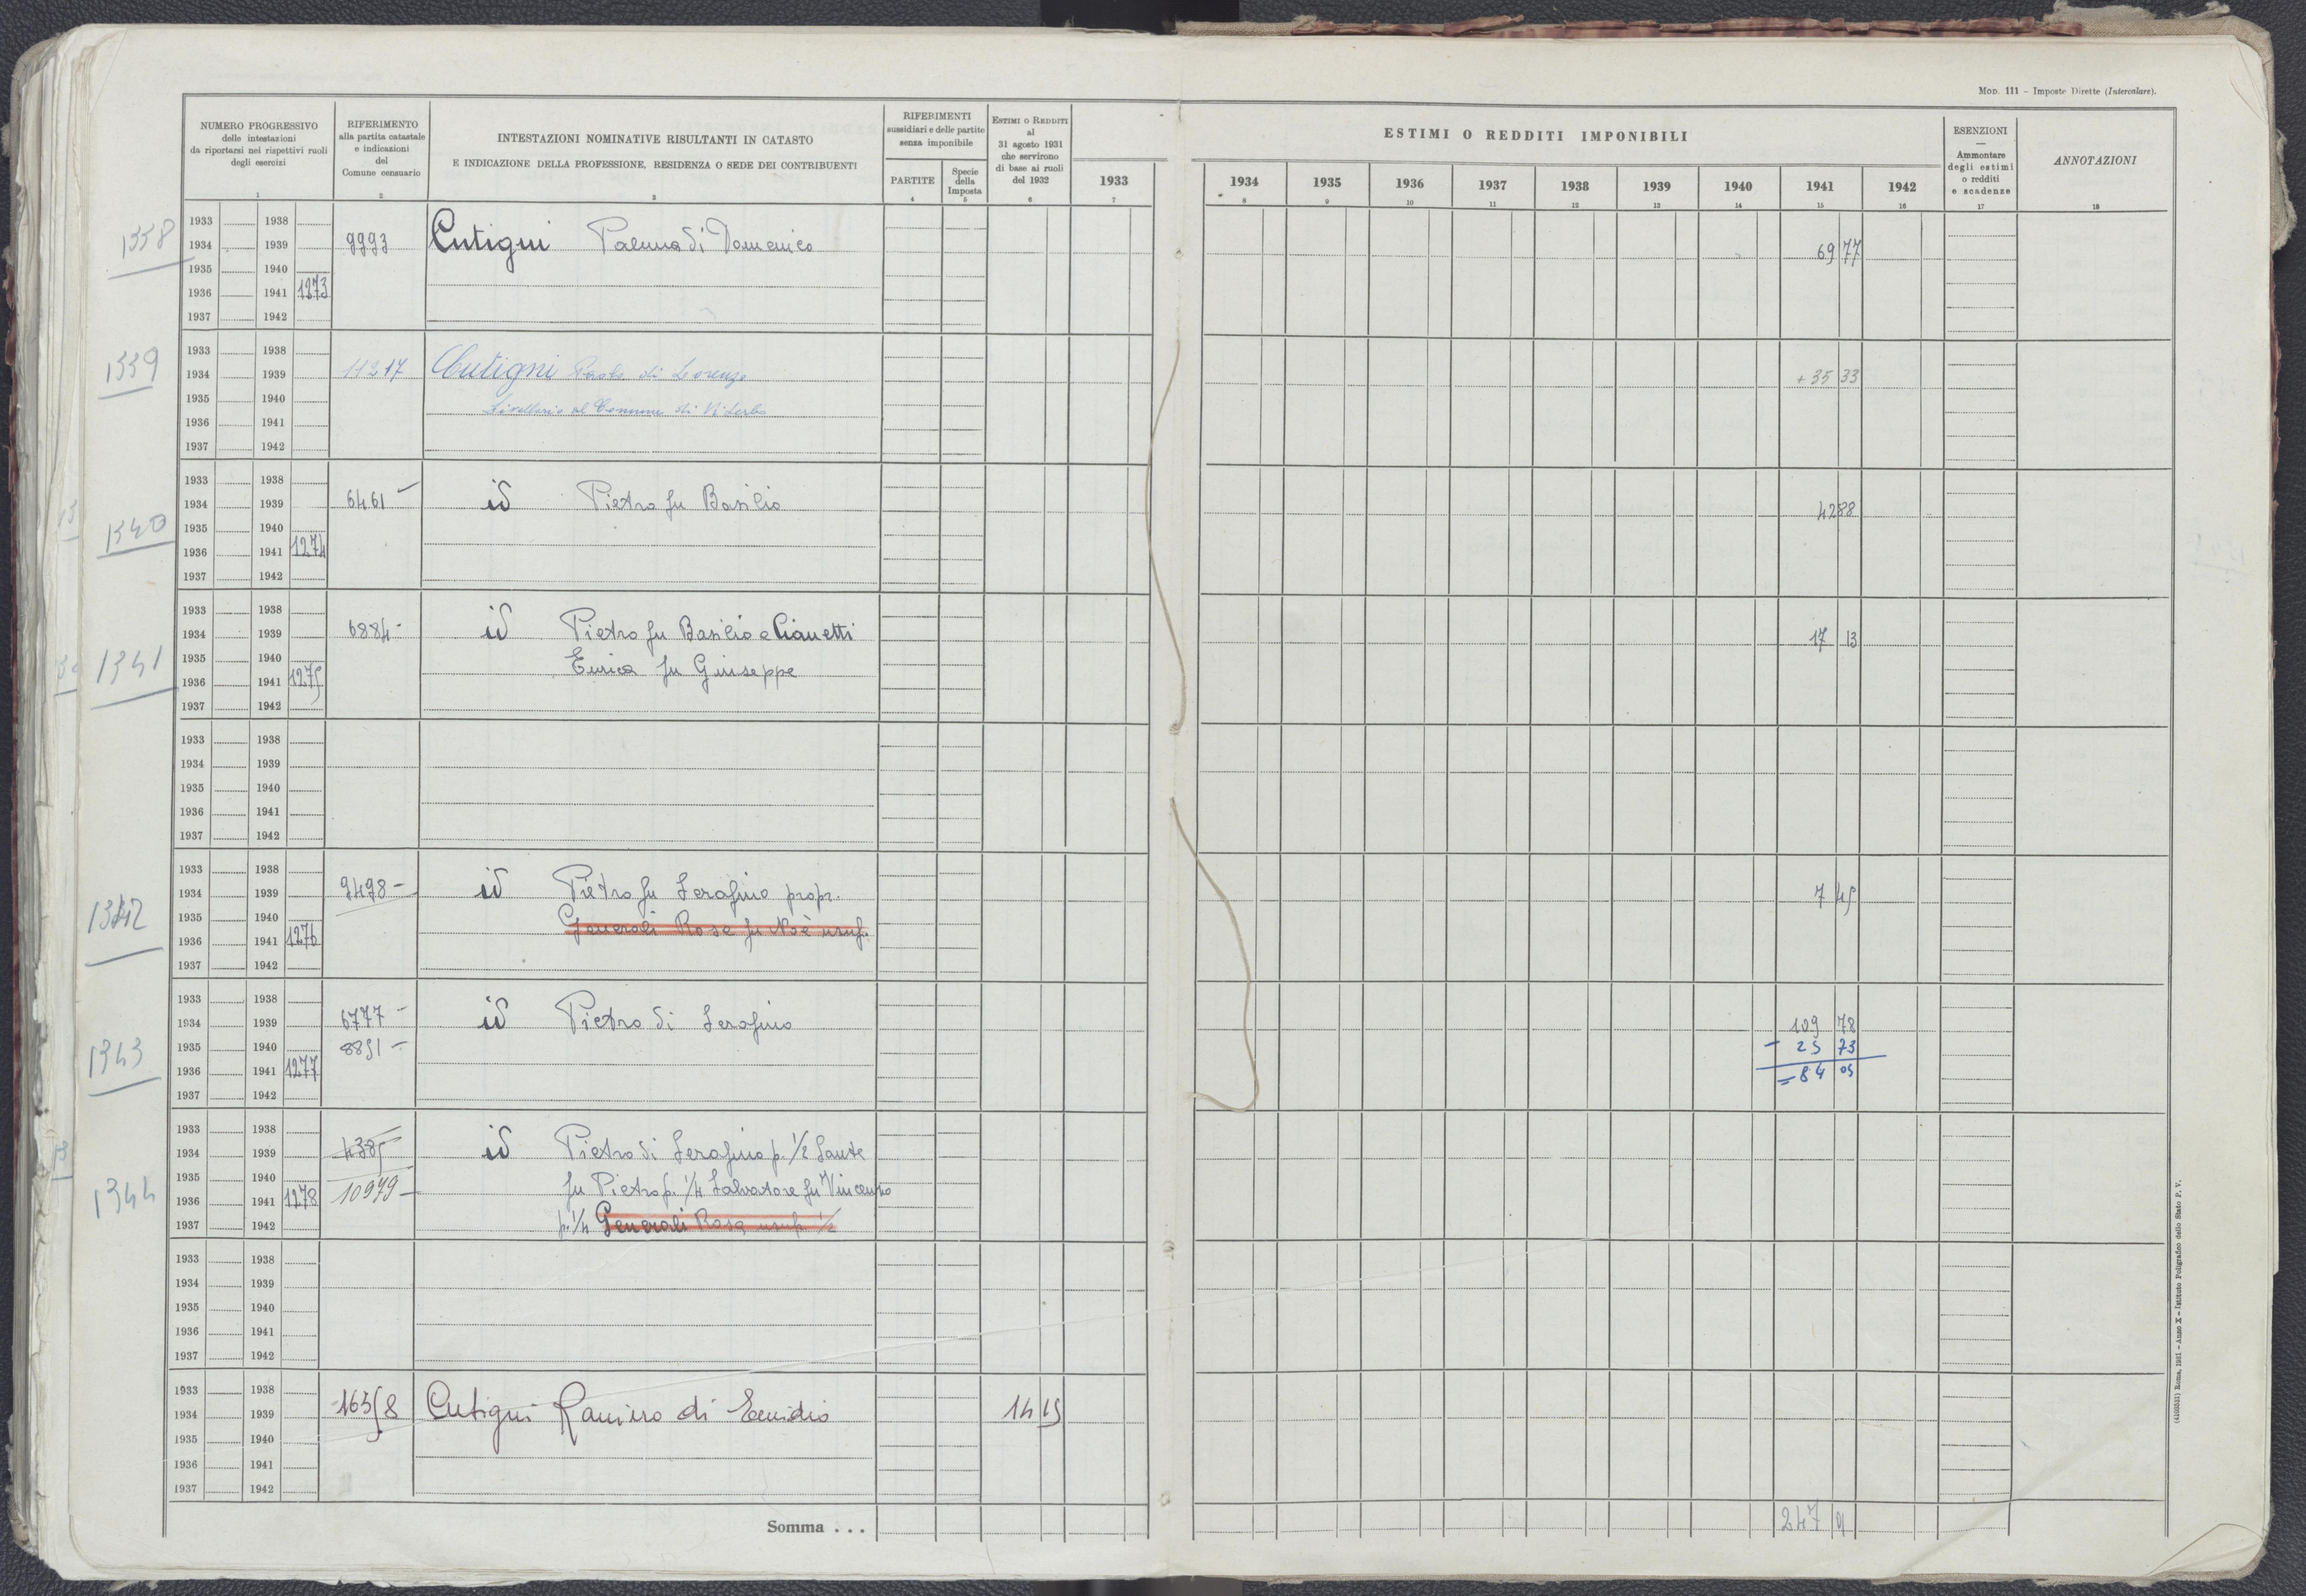 Mod. 111 - Imposte Dirette (Intercalare).
NUMERO PROGRESSIVO
delle intestazioni
da riportarsi nei rispettivi ruoli
degli esercizi
1
RIFERIMENTO
alla partita catastale
e indicazioni
del
Comune censuario
2
INTESTAZIONI NOMINATIVE RISULTANTI IN CATASTO
E INDICAZIONE DELLA PROFESSIONE, RESIDENZA O SEDE DEI CONTRIBUENTI
3
RIFERIMENTI
sussidiari e delle partite
senza imponibile
PARTITE
4
Specie
della
Imposta
5
Estimi o Redditi
al
31 agosto 1931
che servirono
di base ai ruoli
del 1932
6
ESTIMI O REDDITI IMPONIBILI
1933
7
1934
8
1935
9
1936
10
1937
11
1938
12
1939
13
1940
14
1941
15
1942
16
ESENZIONI
—
Ammontare
degli estimi
o redditi
e scadenze
17
ANNOTAZIONI
18
1933 1938
1338 1934 1939 9993 Cutigni Palma di Domenico 69 77
1935 1940
1936 1941 1273
1937 1942
1933 1938
1339 1934 1939 11217 Cutigni Paolo di Lorenzo + 35 33
1935 1940 Livellario al Comune di Viterbo
1936 1941
1937 1942
1933 1938
1340 1934 1939 6461 - id Pietro fu Basilio 42 88
1935 1940
1936 1941 1274
1937 1942
1933 1938
1341 1934 1939 6884 - id Pietro fu Basilio e Cianetti 17 13
1935 1940 Enrica fu Giuseppe
1936 1941 1275
1937 1942
1933 1938
1934 1939
1935 1940
1936 1941
1937 1942
1933 1938
1342 1934 1939 9498 - id Pietro fu Serafino propr. 7 45
1935 1940 Generali Rosa fu Noè usuf.
1936 1941 1276
1937 1942
1933 1938
1343 1934 1939 6777 - id Pietro di Serafino 109 78
1935 1940 8851 - - 25 73
1936 1941 1277 = 84 05
1937 1942
1933 1938
1344 1934 1939 4385 id Pietro di Serafino p. 1/2 Sante
1935 1940
1936 1941 1278 10979 - fu Pietro p. 1/4 Salvatore fu Vincenzo
1937 1942 p. 1/4 Generali Rosa usuf. 1/2
1933 1938
1934 1939
1935 1940
1936 1941
1937 1942
1933 1938
1934 1939 16358 Cutigni Ramiro di Emidio 14 15
1935 1940
1936 1941
1937 1942
Somma . . . 247
(4100531) Roma, 1931 - Anno X - Istituto Poligrafico dello Stato P. V.